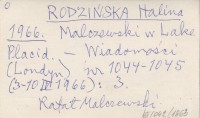 RODZIŃSKA Halina
1966. Malczewski w Lake
Placid. – Wiadomości
(Londyn) nr 1044-1045
(3-10 IV 1966): 3.
Rafał Malczewski